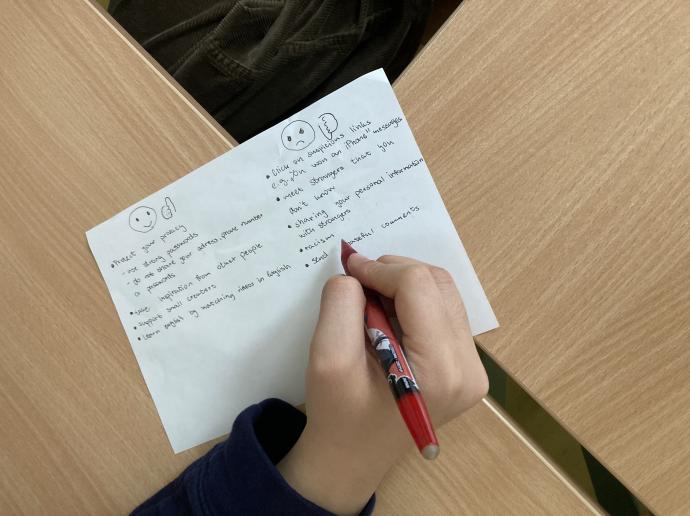 • Protect your privacy
- use strong passwords
- do not share your adress, phone number
a passwords
• take inspiration from other people
• support small creators
• learn english by watching videos in English
• Click on suspicious links
e.g. „You won an iPhone" messages
• meet strangers that you
don't know
• sharing your personal information
with strangers
• racism
• send comments